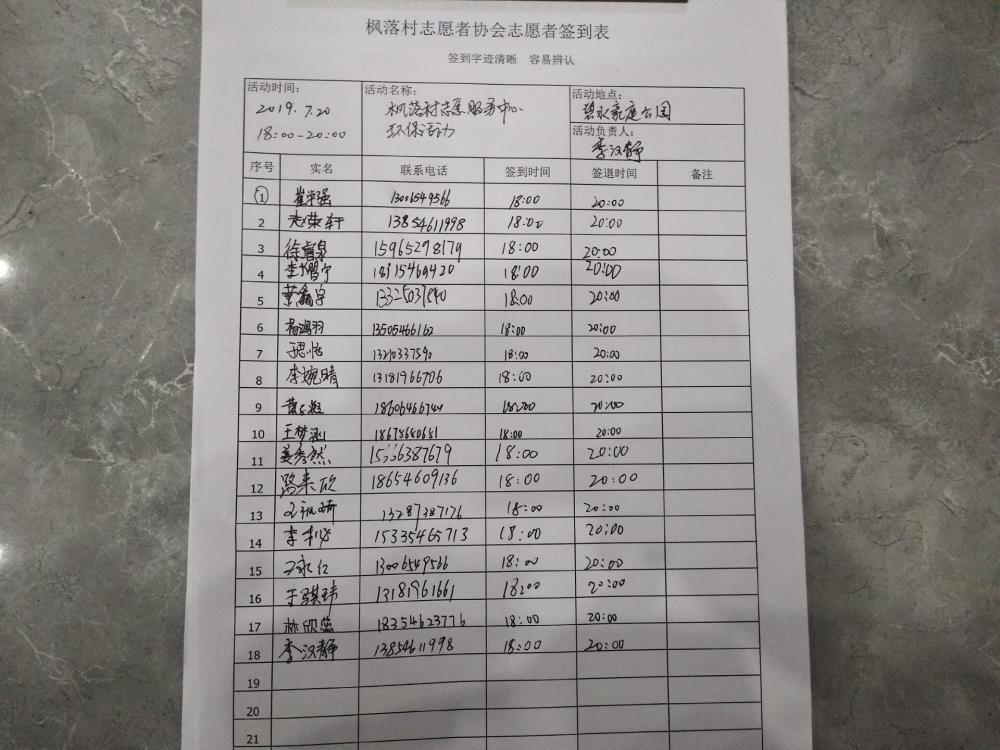 枫落村志愿者协会志愿者签到表
签到字迹清晰 容易辨认
活动时间: 活动名称: 活动地点:
2019.7.20 枫落村志愿服务中心 碧水豪庭公园
18:00-20:00 环保活动 活动负责人:
李汉静
序号 实名 联系电话 签到时间 签退时间 备注
1 崔学强 13006549566 18:00 20:00
2 赵荣轩 13854611998 18:00 20:00
3 徐睿泉 15965298179 18:00 20:00
4 18315469420 18:00 20:00
5 黄鑫宇 18:00 20:00
6 杨鸿羽 13505466162 18:00 20:00
7 13210337590 18:00 20:00
8 李婉晴 13181966706 18:00 20:00
9 18:00 20:00
10 王梦涵 18678680651 18:00 20:00
11 姜秀然 15336387679 18:00 20:00
12 路来欣 18654609136 18:00 20:00
13 13287387176 18:00 20:00
14 15335465713 18:00 20:00
15 13006549566 18:00 20:00
16 于骐玮 13181961661 18:00 20:00
17 林欣蕊 18354623776 18:00 20:00
18 李汉静 13854611998 18:00 20:00
19
20
21